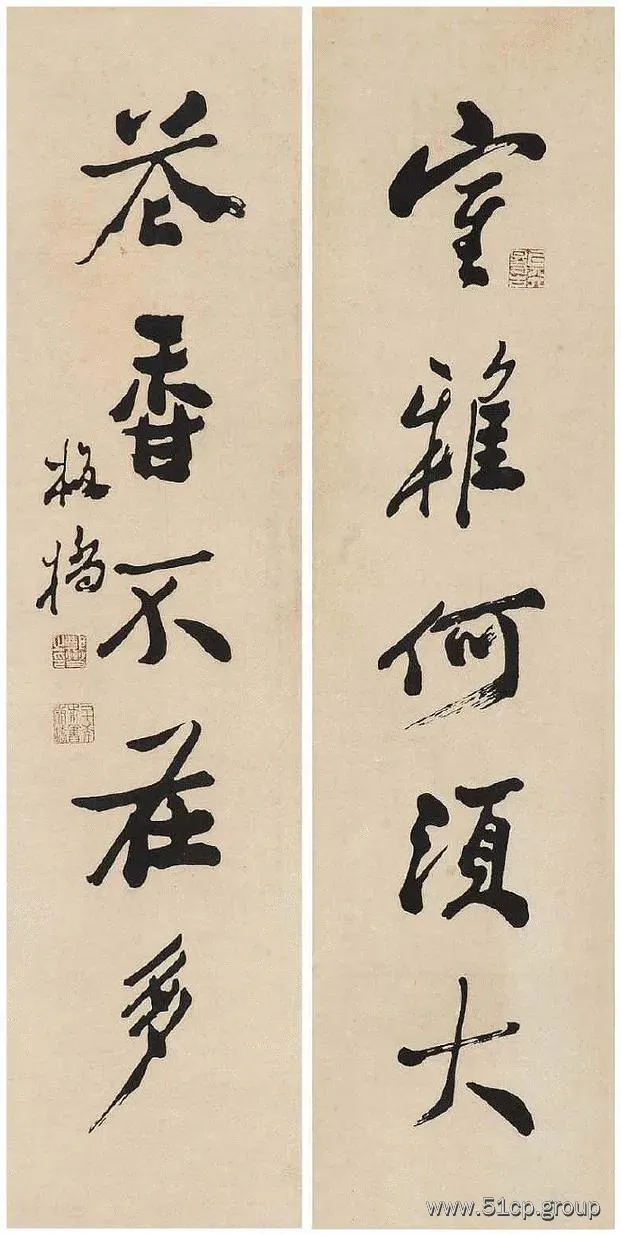 室雅何須大
花香不在多
板橋
www.51cp.group